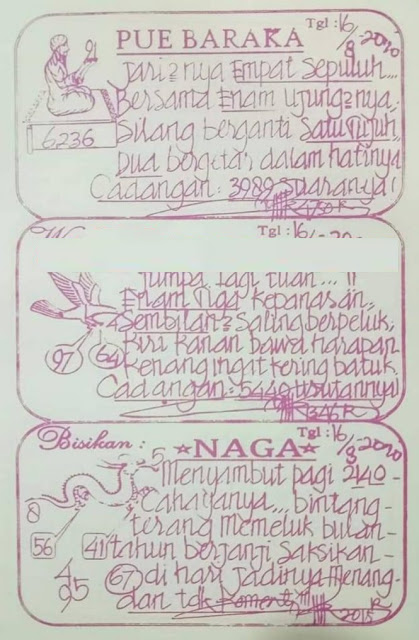 PUE BARAKA
Tgl : 16/8-2020
91
6236
Jari2nya Empat Sepuluh...
Bersama Enam Ujung2nya,
Silang berganti Satu Tujuh,
Dua bergetar dalam hatinya
Cadangan : 3989 Suaranya!
Tgl : 16
Jumpa lagi tuan ... !!
Enam Tiga kepanasan,
Sembilan2 Saling berpeluk,
Kiri kanan bawa harapan
Kenang ingat kering batuk.
97
64
Cadangan : 5440
Bisikan :
☆NAGA☆
Tgl : 16/8-2020
5
8
56
41
67
4
95
Menyambut pagi 2140-
Cahayanya... bintang-
terang Memeluk bulan-
tahun berjanji Saksikan-
di hari Jadinya Menang-
dan tdk Koment